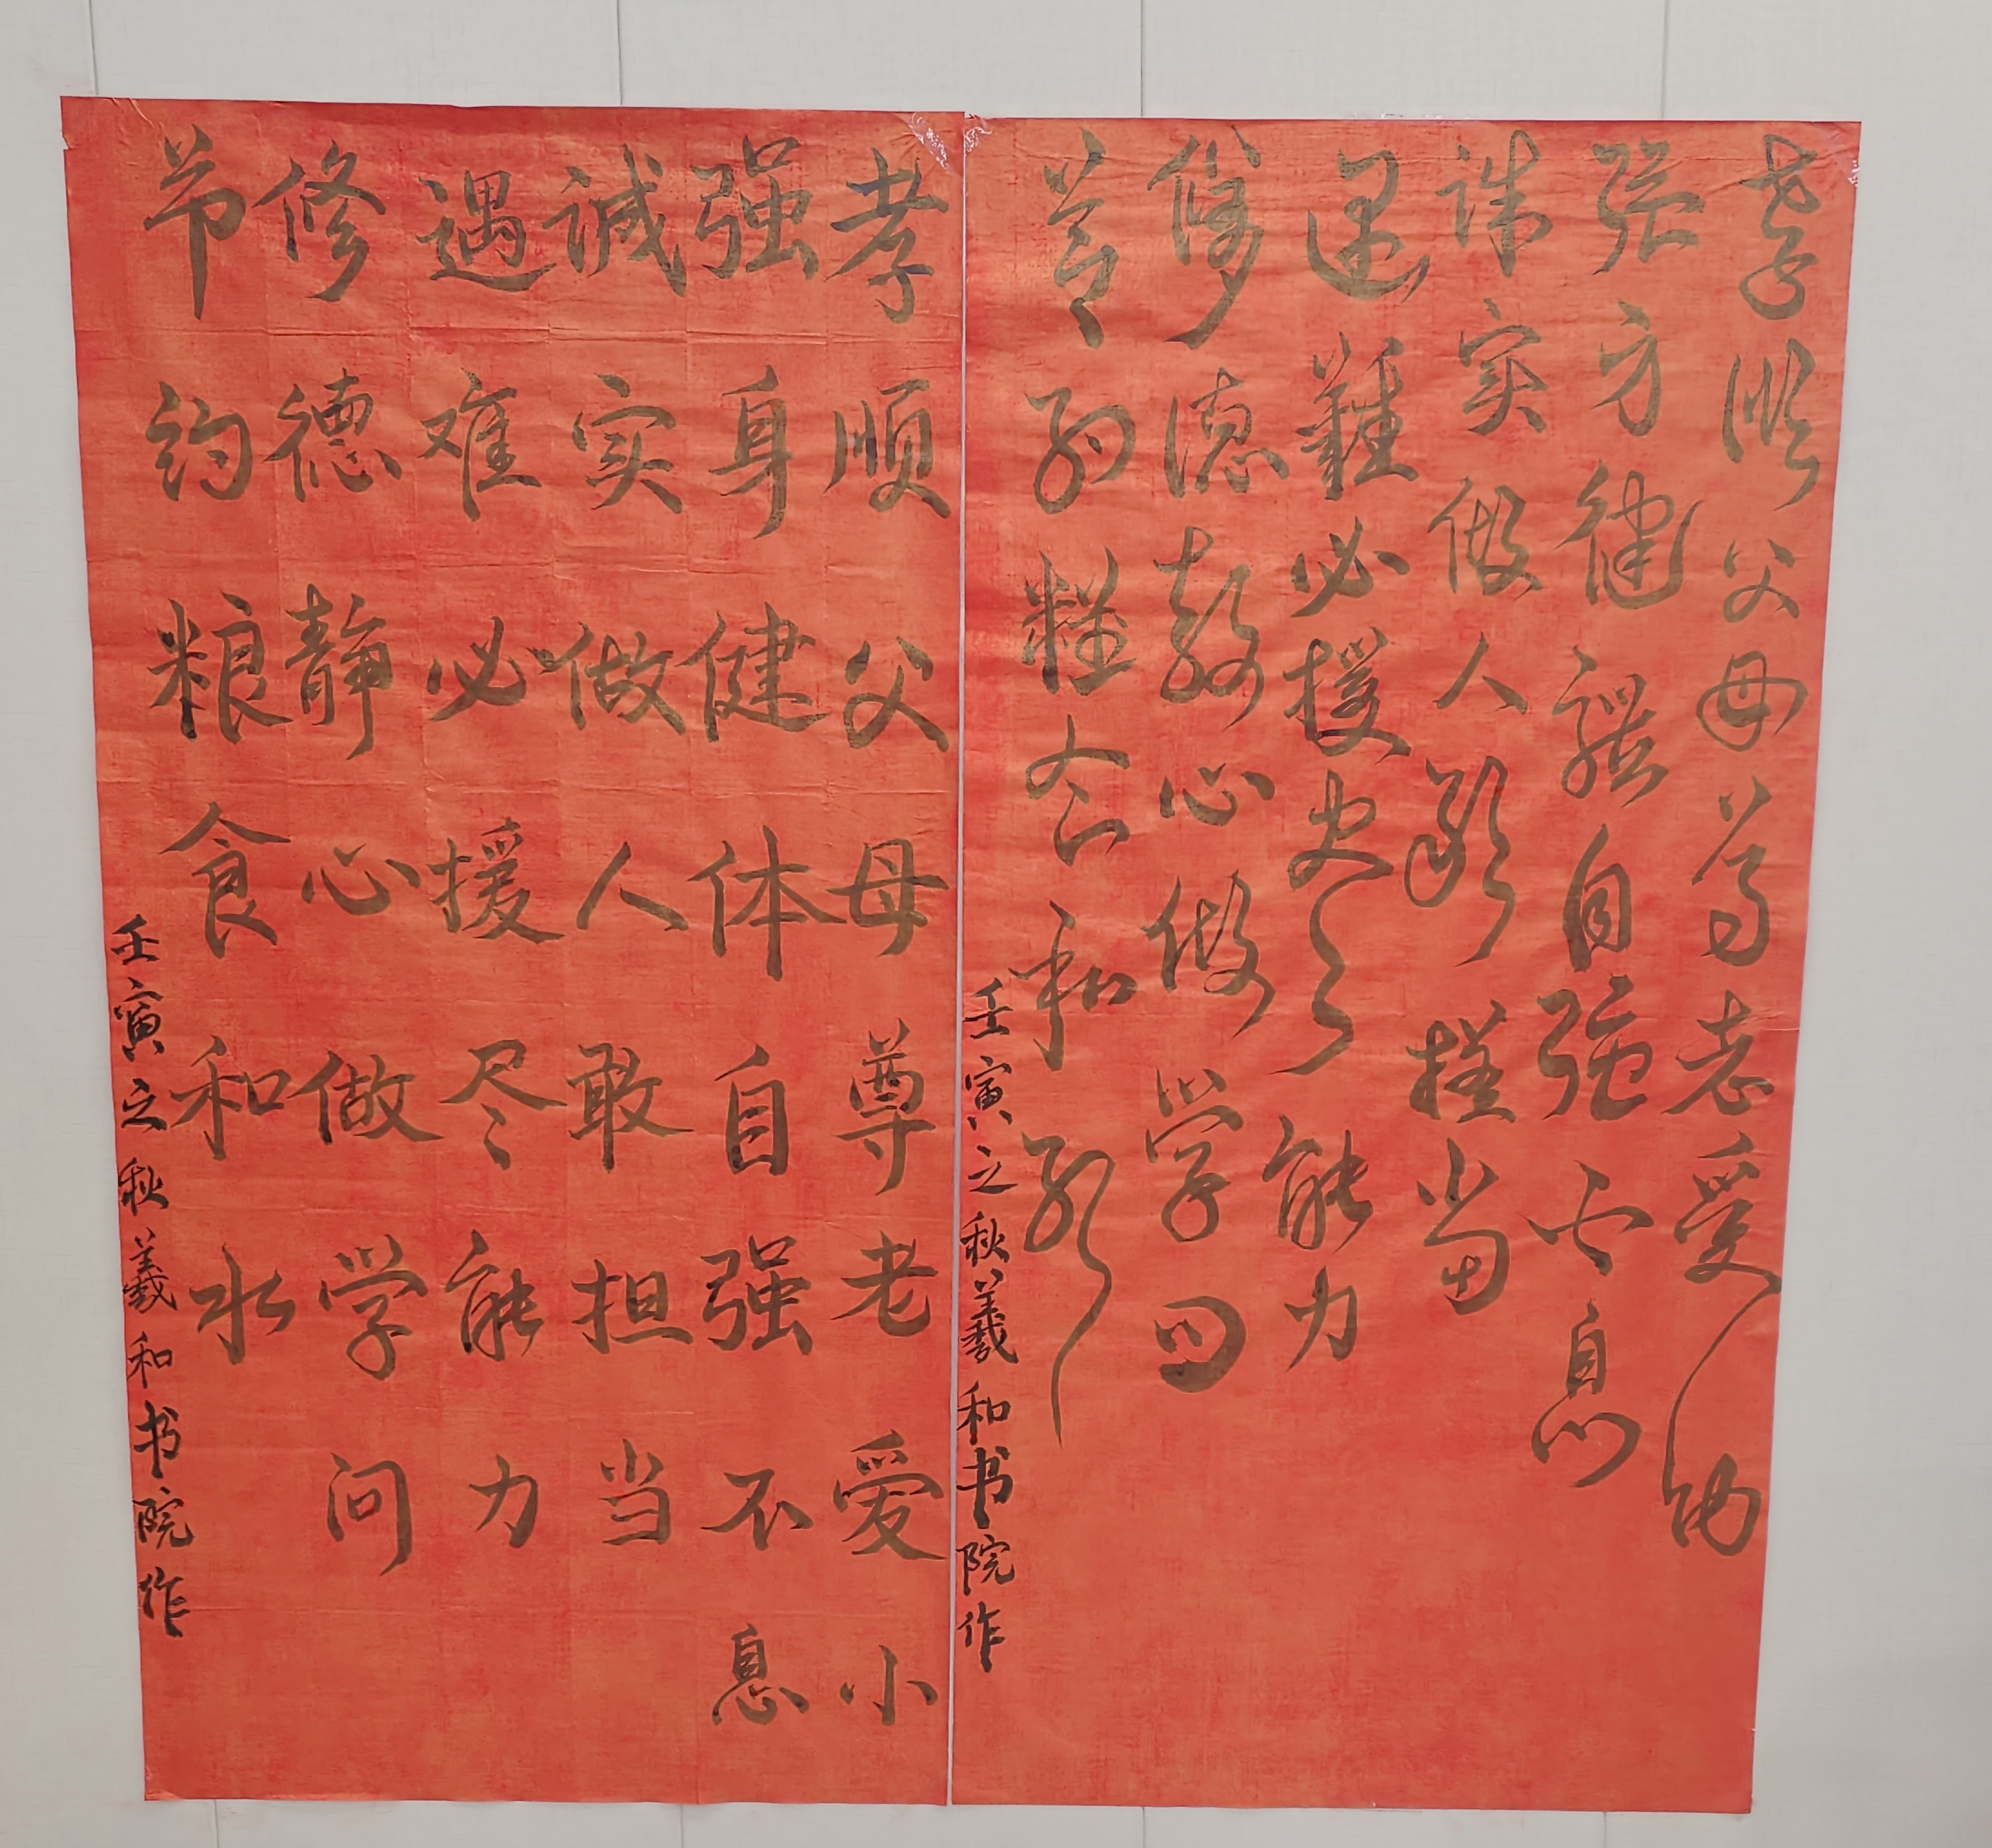 孝顺父母尊老爱幼
强身健體自强不息
诚实做人敢擔当
遇難必援尽能力
修德静心做学问
节约糧食和水
壬寅之秋羲和书院作
孝顺父母尊老爱小
强身健体自强不息
诚实做人敢担当
遇难必援尽能力
修德静心做学问
节约粮食和水
壬寅之秋羲和书院作